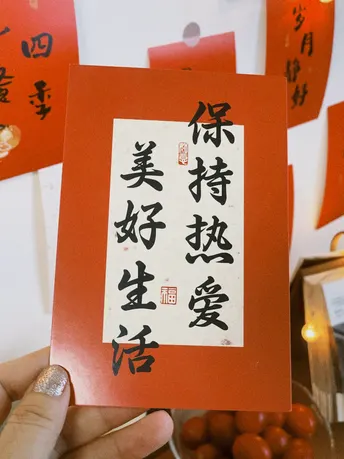 保持热爱
美好生活
福
四季
岁月静好